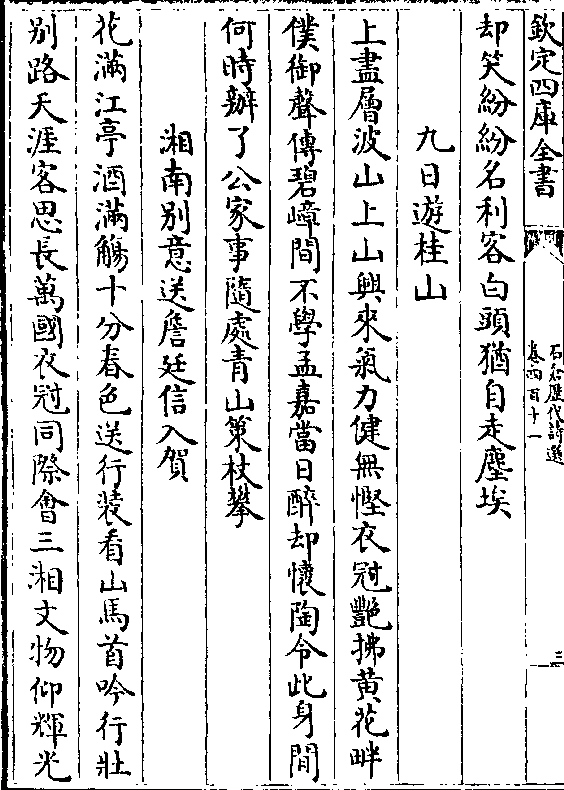 欽定四庫全書
石倉歷代詩選
卷四百十一
三
却笑紛紛名利客白頭猶自走塵埃
九日遊桂山
上盡層波山上山興來氣力健無慳衣冠艷拂黄花畔
僕御聲傳碧嶂間不學孟嘉當日醉却懷陶令此身閒
何時辦了公家事隨處青山策杖攀
湘南别意送詹廷信入賀
花滿江亭酒滿觴十分春色送行装看山馬首吟行壯
别路天涯客思長萬國衣冠同際會三湘文物仰輝光